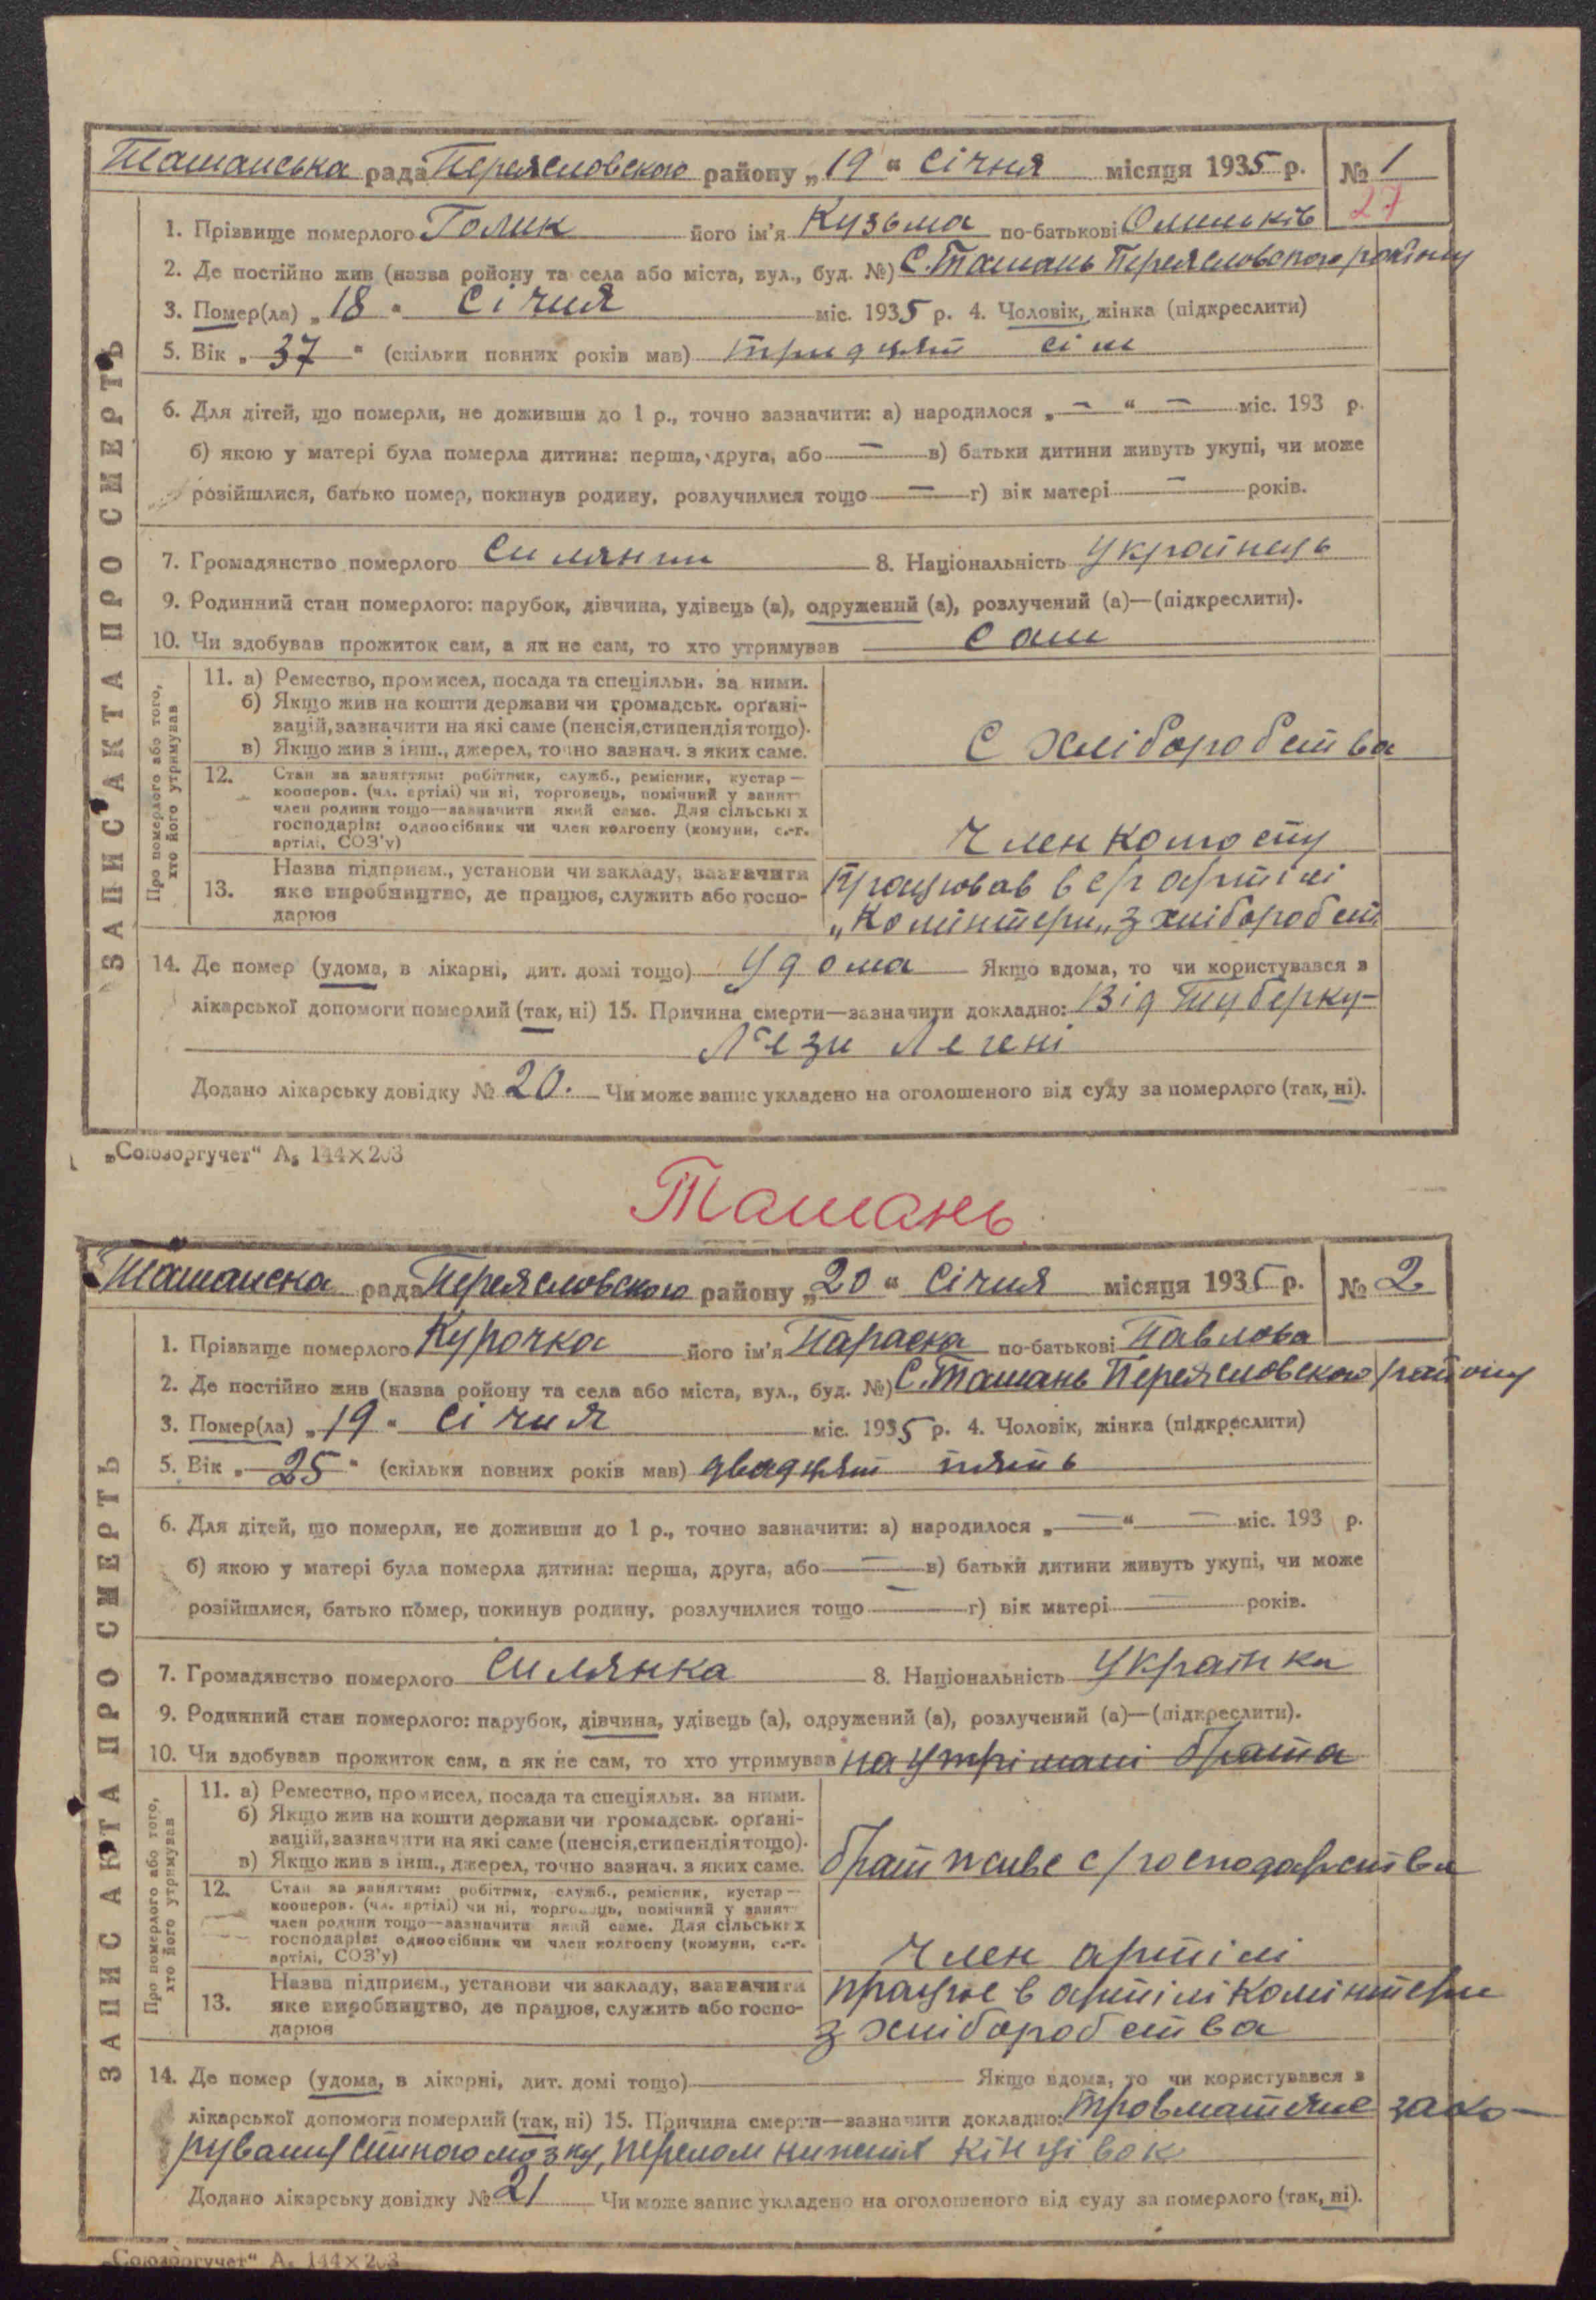 Ташанська рада Переясловского району „19“ Січня місяця 1935 р. № 1
27
1. Прізвище померлого Голик його ім'я Кузьма по-батькові
2. Де постійно жив (назва ройону та села або міста, вул., буд. №) С. Ташань Переясловського району
3. Помер(ла) „18“ Січня міс. 1935 р. 4. Чоловік, жінка (підкреслити)
5. Вік „37“ (скільки повних років мав) тридцят сім
6. Для дітей, що померли, не доживши до 1 р., точно зазначити: а) народилося „—“ — міс. 193 р.
б) якою у матері була померла дитина: перша, друга, або — в) батьки дитини живуть укупі, чи може
розійшлися, батько помер, покинув родину, розлучилися тощо — г) вік матері — років.
7. Громадянство померлого Силянин 8. Національність Українець
9. Родинний стан померлого: парубок, дівчина, удівець (а), одружений (а), розлучений (а)—(підкреслити).
10. Чи здобував прожиток сам, а як не сам, то хто утримував Сам
ЗАПИС АКТА ПРО СМЕРТЬ
Про померлого або того, хто його утримував
11. а) Ремество, промисел, посада та спеціяльн. за ними.
б) Якщо жив на кошти держави чи громадськ. органі-
зацій, зазначити на які саме (пенсія, стипендія тощо).
в) Якщо жив з інш., джерел, точно зазнач. з яких саме.
С хліборобства
12. Стан за заняттям: робітник, служб., ремісник, кустар—
кооперов. (чл. артілі) чи ні, торговець, помічний у занят.
член родини тощо—зазначити який саме. Для сільських
господарів: одноосібник чи член колгоспу (комуни, с.-г.
артілі, СОЗ'у)
Член колгоспу
13. Назва підприєм., установи чи закладу, зазначити
яке виробництво, де працює, служить або госпо-
дарює
Працював в с/г артілі
„Комінтерн„ з хлібороб ств
14. Де помер (удома, в лікарні, дит. домі тощо) Удома Якщо вдома, то чи користувався з
лікарської допомоги померлий (так, ні) 15. Причина смерти—зазначити докладно: Від туберку-
льези легені
Додано лікарську довідку № 20. Чи може запис укладено на оголошеного від суду за померлого (так, ні).
„Союзоргучет“ А₅ 144×203
Ташань
Ташанска рада Переясловского району „20“ Січня місяця 1935 р. № 2
1. Прізвище померлого Курочка його ім'я Параска по-батькові Павлова
2. Де постійно жив (назва ройону та села або міста, вул., буд. №) С. Ташань Переясловского району
3. Помер(ла) „19“ Січня міс. 1935 р. 4. Чоловік, жінка (підкреслити)
5. Вік „25“ (скільки повних років мав) двадцят пять
6. Для дітей, що померли, не доживши до 1 р., точно зазначити: а) народилося „—“ — міс. 193 р.
б) якою у матері була померла дитина: перша, друга, або — в) батьки дитини живуть укупі, чи може
розійшлися, батько помер, покинув родину, розлучилися тощо — г) вік матері — років.
7. Громадянство померлого Силянка 8. Національність Українка
9. Родинний стан померлого: парубок, дівчина, удівець (а), одружений (а), розлучений (а)—(підкреслити).
10. Чи здобував прожиток сам, а як не сам, то хто утримував на утрімані брата
ЗАПИС АКТА ПРО СМЕРТЬ
Про померлого або того, хто його утримував
11. а) Ремество, промисел, посада та спеціяльн. за ними.
б) Якщо жив на кошти держави чи громадськ. органі-
зацій, зазначити на які саме (пенсія, стипендія тощо).
в) Якщо жив з інш., джерел, точно зазнач. з яких саме.
брат живе с/господарства
12. Стан за заняттям: робітник, служб., ремісник, кустар—
кооперов. (чл. артілі) чи ні, торговець, помічний у занят.
член родини тощо—зазначити який саме. Для сільських
господарів: одноосібник чи член колгоспу (комуни, с.-г.
артілі, СОЗ'у)
Член артілі
13. Назва підприєм., установи чи закладу, зазначити
яке виробництво, де працює, служить або госпо-
дарює
працює в артілі Комінтерн
з хліборобства
14. Де помер (удома, в лікарні, дит. домі тощо) Якщо вдома, то чи користувався з
лікарської допомоги померлий (так, ні) 15. Причина смерти—зазначити докладно: Тровматичне захо-
рування мозку, перелом нижніх кінцівок
Додано лікарську довідку № 21 Чи може запис укладено на оголошеного від суду за померлого (так, ні).
„Союзоргучет“ А₅ 144×203